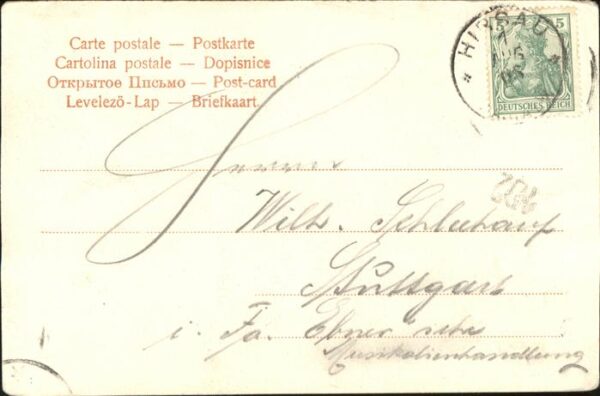 Carte postale — Postkarte
Cartolina postale — Dopisnice
Открытое Письмо — Post-card
Levelező-Lap — Briefkaart
HIRSAU
5
DEUTSCHES REICH
Herrn
Wilh. Schlechauf
Stuttgart
i. Fa. Ebner'sche
Musikalienhandlung